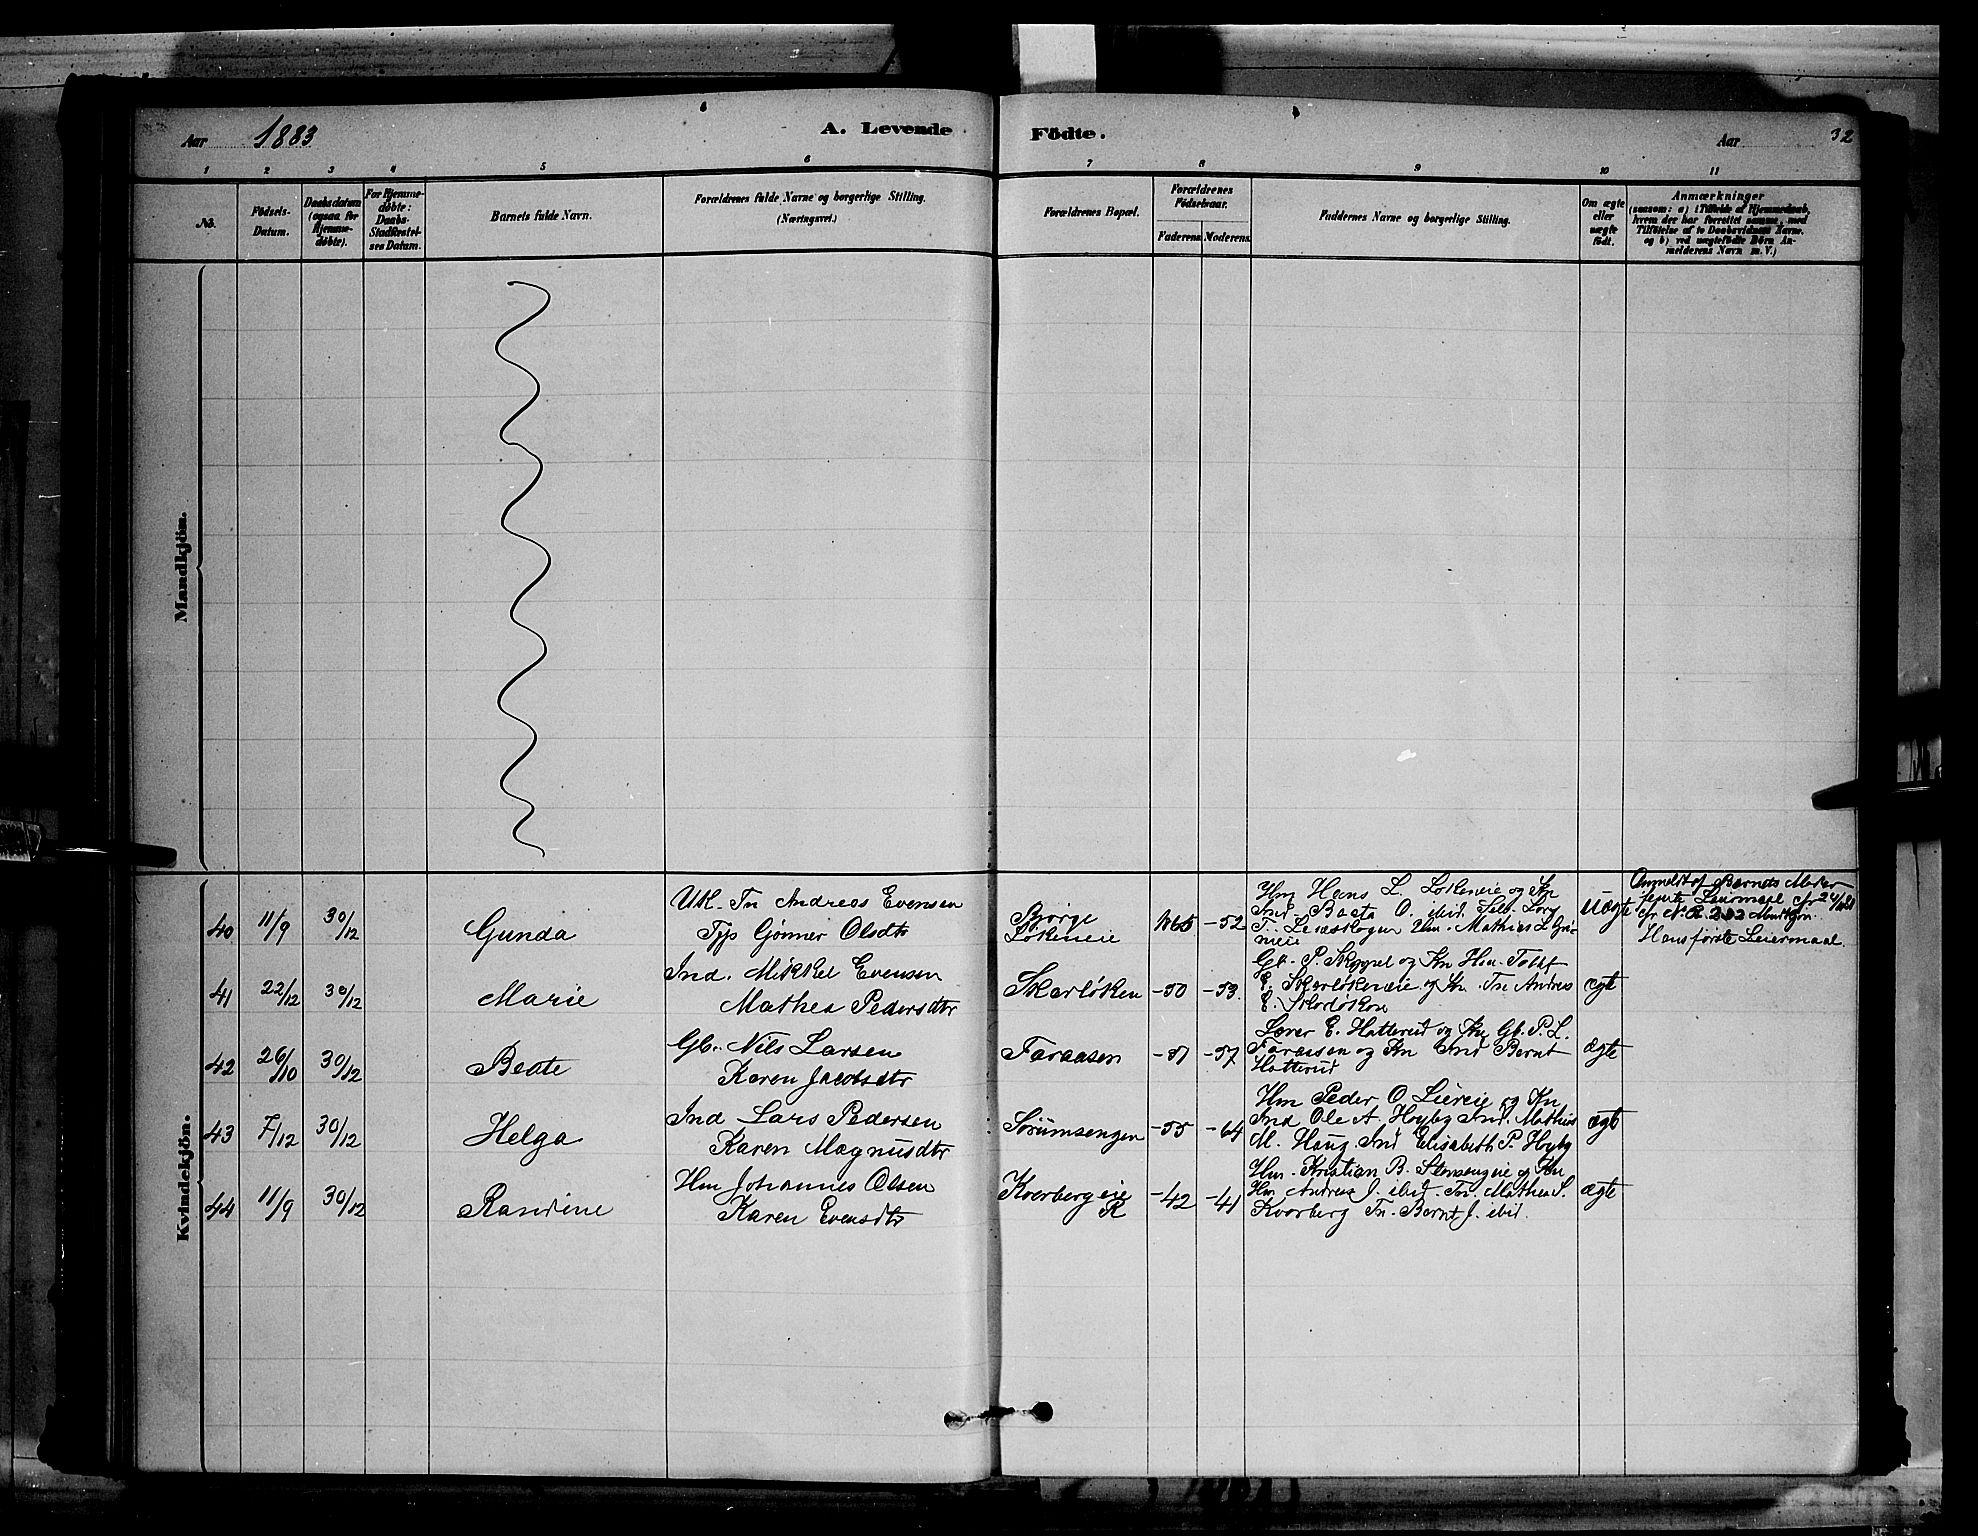 Aar 1883
A. Levende Födte.
Aar
32
1 2 3 4 5 6 7 8 9 10 11
No.
Födsels-
Datum.
Daabsdatum
(ogsaa for
Hjemme-
døbte).
For Hjemme-
døbte:
Daabs-
Stadfæstel-
ses Datum.
Barnets fulde Navn.
Forældrenes fulde Navne og borgerlige Stilling.
(Næringsvei.)
Forældrenes Bopæl.
Forældrenes
Födselsaar.
Faderens Moderens
Faddernes Navne og borgerlige Stilling.
Om ægte
eller
uægte
födt.
Anmærkninger
(saasom: a) i Tilfælde af Hjemmedaab,
hvem der har forrettet samme, med
Tilföielse af to Daabsvidners Navne.
og b) ved uægtefödte Börn An-
melderens Navn m. V.)
Mandkjön.
Kvindekjön.
40 11/9 30/12 Gunda
Uk. Tn Andreas Evensen
Tjp Gjønner Olsdtr
Bjørge
Løkeneie
-52
Hm Hans L. Løkeneie og Kn
Ind. O. ibid. Selb. Lars
Mathias L.
Uægte
Anmeldt af Barnets Moder
Leiermaal
Hans første Leiermaal.
41 22/12 30/12 Marie
Ind. Mikkel Evensen
Mathea Pedersdtr
Skarløken -50 -53
Gb. P. og Kn Hm.
E. Skarløkeneie og Kn. Tn Andreas
E. Skarløken
ægte
42 26/10 30/12 Beate
Gb. Nils Larsen
Karen Jacobsdtr
Faraasen -57
Lærer E. Hatterud og Kn Gb. P. L.
Faraasen og Kn Ind Bernt
Hatterud
ægte
43 7/12 30/12 Helga
Ind Lars Pedersen
Karen Magnusdtr
Sørumsengen -55 -64
Hm Peder O. Liereie og Kn
Ind Ole A. Høyby Ind. Mathias
M. Haug. Ind Elisabeth P. Høyby
ægte
44 11/9 30/12 Randine
Hm Johannes Olsen
Karen Evensdtr
Kværberg eie
R
-42 -41
Hm. Kristian B. og Kn
Hm Andreas J. ibid. Tn. Mathea S.
Kværberg Tn. Bernt J. ibid.
ægte